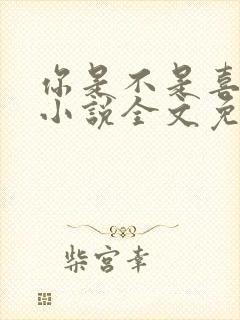 你是不是喜
小说全文免
柴宫幸